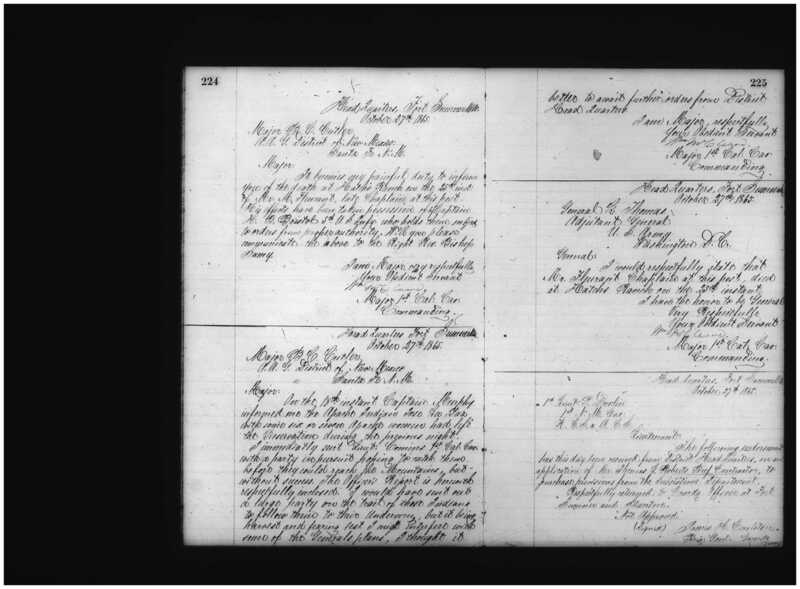 224
Head Quarters, Fort Sumner N.M.
October 27th 1865.
Major B. C. Cutler,
A.A.G. District of New Mexico
Santa Fe N.M.
Major
It becomes my painful duty to inform
you of the death at Hatchs Ranch on the 25th inst
of Mr. M. chaplain at this post
His effects have been taken possession of by Captain
H. B. Bristol 5th U.S. Infy who holds them subject
to orders from proper authority. Will you please
communicate the above to the Right Rev Bishop
Lamy.
I am Major very respectfully
Your Obedient Servant
Wm
Major 1st Cal. Cav.
Commanding.
Head Quarters Fort Sumner
October 27th 1865.
Major B. C. Cutler,
A.A.G. District of New Mexico
" Santa Fe N.M.
Major:
On the instant Captain Murphy
informed me the Apache Indians
with some six or seven Apache women had left
the Reservation during the previous night.
I immediately sent Lieut. 1st Cal. Cav.
with a party in pursuit hoping to catch them
before they could reach the Mountains, but
without success. The Officers Report is herewith
respectfully enclosed. I would have sent out
a large party on the trail of these Indians
to follow them to their but it being
and fearing lest I might interfere with
some of the Generals plans, I thought it
225
better to await further orders from District
Head Quarters.
I am Major, respectfully,
Your Obedient Servant
Wm
Major 1st Cal. Cav
Commanding.
Head Quarters, Fort Sumner
October 27th 1865.
General L. Thomas.
Adjutant General
U. S. Army
Washington D.C.
General
I would respectfully state that
Mr. Chaplain at this post, died
at Hatchs Ranch on the 25th instant.
I have the honor to be General
Very Respectfully
Your Obedient Servant
Wm
Major 1st Cal. Cav.
Commanding.
Head Quarters, Fort Sumner N.M.
October 27th 1865.
1st Lieut.
1st N. M. Cav.
A.C.S.
Lieutenant
The following endorsement
has this day been received from District Head Quarters, on an
application of Mr. J. Roberts Beef Contractor, to
purchase provisions from the Subsistence Department.
Respectfully returned to Comdg Officer at Fort
Sumner and
Not Approved
(Signed) James H. Carleton
Brig. Genl.